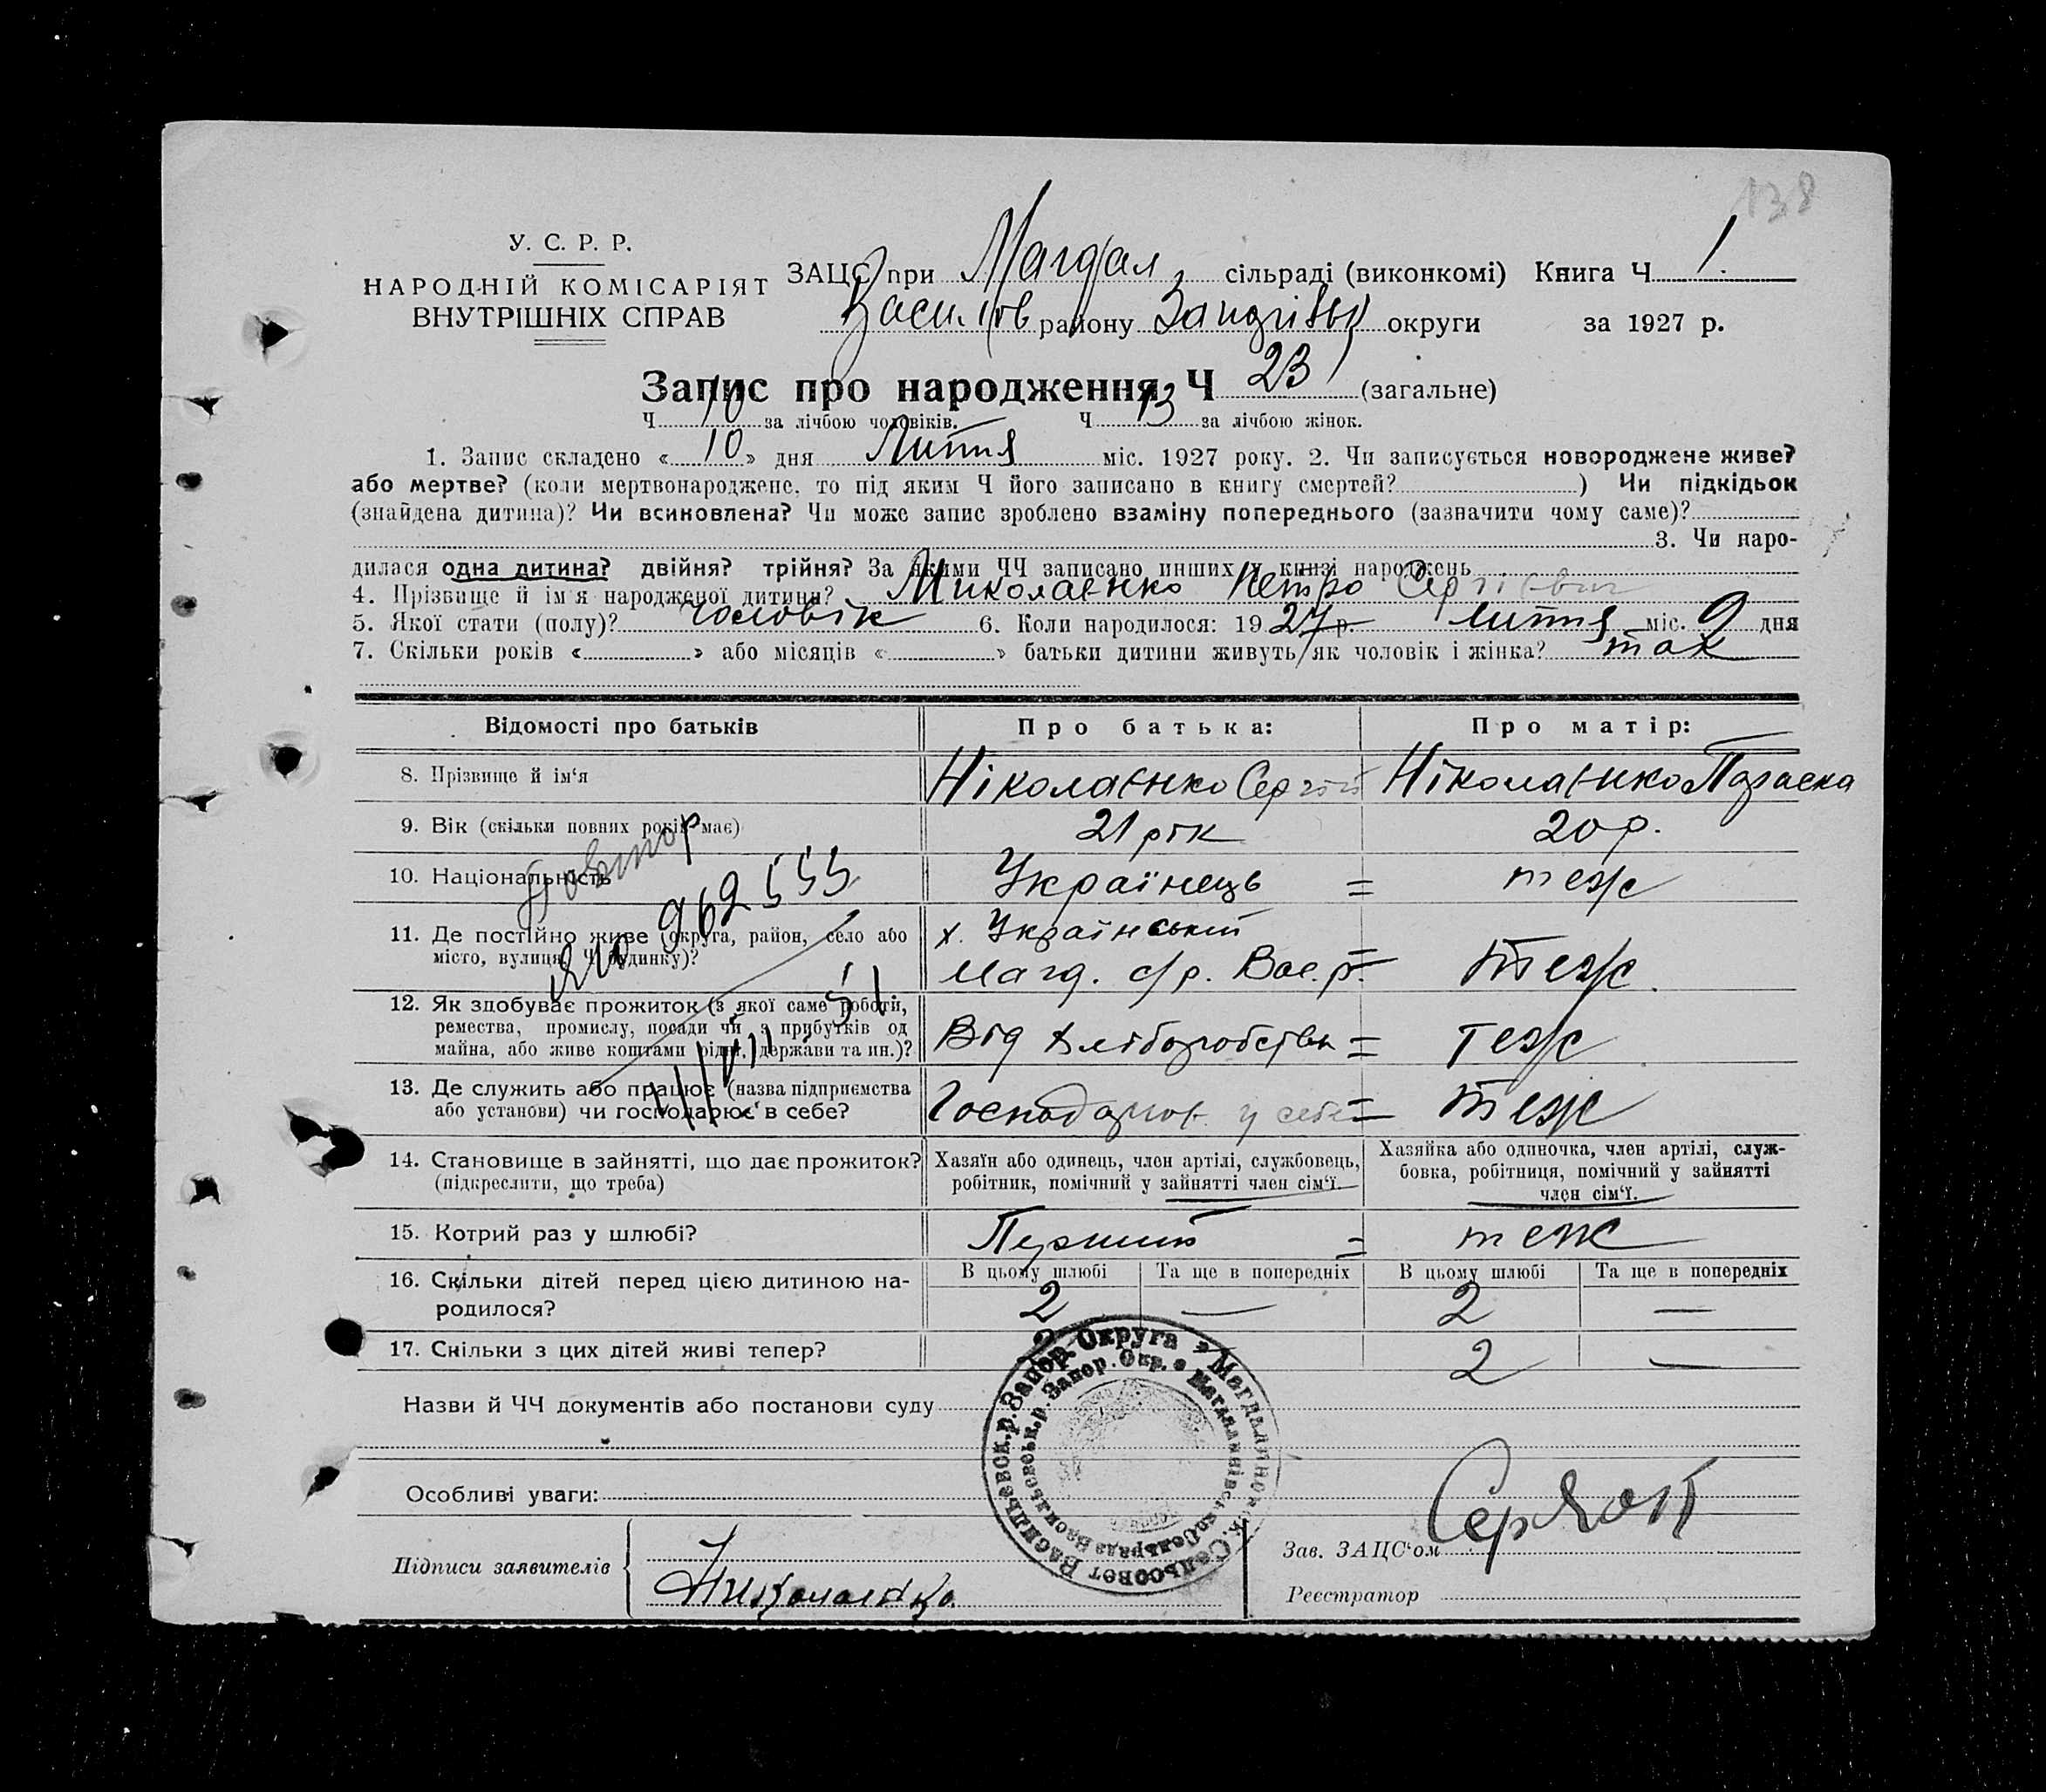 138
У. С. Р. Р.
НАРОДНІЙ КОМІСАРІЯТ
ВНУТРІШНІХ СПРАВ
ЗАЦС при Магдал сільраді (виконкомі) Книга Ч 1
Василів району Запорізьк округи за 1927 р.
Запис про народження Ч 23 (загальне)
Ч 10 за лічбою чоловіків. Ч 13 за лічбою жінок.
1. Запис складено « 10 » дня Липня міс. 1927 року. 2. Чи записується новороджене живе?
або мертве? (коли мертвонароджене, то під яким Ч його записано в книгу смертей? ) Чи підкідьок
(знайдена дитина)? Чи всиновлена? Чи може запис зроблено взаміну попереднього (зазначити чому саме)?
3. Чи наро-
дилася одна дитина? двійня? трійня? За якими ЧЧ записано инших у книзі народжень
4. Прізвище й ім'я народженої дитини? Миколаєнко Петро Сергієвич
5. Якої стати (полу)? чоловік 6. Коли народилося: 1927 р. Липня міс. 9 дня
7. Скільки років « » або місяців « » батьки дитини живуть як чоловік і жінка? так
Відомості про батьків Про батька: Про матір:
8. Прізвище й ім'я Ніколаєнко Сергій Ніколаєнко Параска
9. Вік (скільки повних років має) 21 рік 20 р.
10. Національність Українець = теж
11. Де постійно живе (округа, район, село або
місто, вулиця, Ч будинку)?
х. Український
Магд. с/р. Вас. р. = теж
12. Як здобуває прожиток (з якої саме роботи,
ремества, промислу, посади чи з прибутків од
майна, або живе коштами рідні, держави та ин.)?
Від хліборобства = теж
13. Де служить або працює (назва підприємства
або установи) чи господарює в себе?
Господарює у себе = теж
Повтор
962555
14. Становище в зайнятті, що дає прожиток?
(підкреслити, що треба)
Хазяїн або одинець, член артілі, службовець,
робітник, помічний у зайнятті член сім'ї.
Хазяйка або одиночка, член артілі, служ-
бовка, робітниця, помічний у зайнятті
член сім'ї.
15. Котрий раз у шлюбі? Перший = теж
16. Скільки дітей перед цією дитиною на-
родилося?
В цьому шлюбі Та ще в попередніх В цьому шлюбі Та ще в попередніх
2 — 2 —
17. Скільки з цих дітей живі тепер? 2 2 —
Назви й ЧЧ документів або постанови суду
Особливі уваги:
Підписи заявителів
Николаєнко
Зав. ЗАЦС'ом
Реєстратор
Магдалиновск. Сельсовет Васильевск. р. Запор. Округа
Магдалинівська Сельрада Васильевськ. р. Запор. Окр.